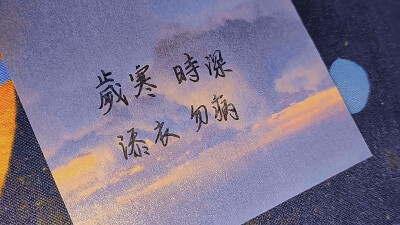 歲寒 時深
添衣 勿病